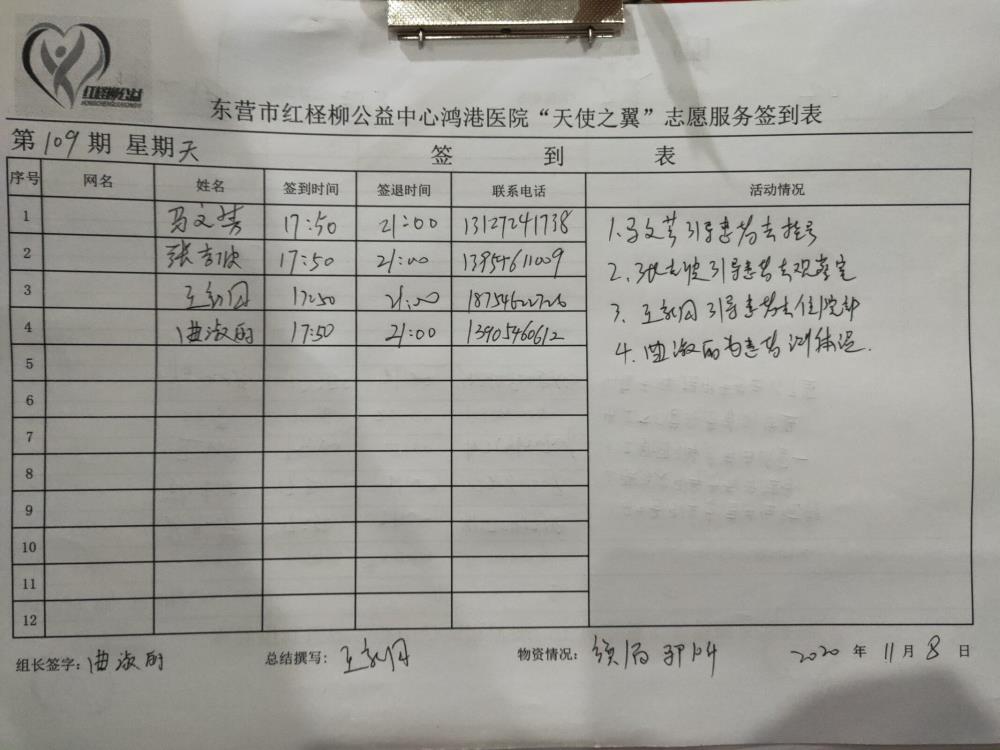 红柽柳公益
HONGCHENGLIUGONGYI
东营市红柽柳公益中心鸿港医院“天使之翼”志愿服务签到表
第109期 星期天 签到表
序号 网名 姓名 签到时间 签退时间 联系电话 活动情况
1 马文芳 17:50 21:00 13127241738 1.马文芳引导患者去挂号
2 张吉波 17:50 21:00 13954611009 2.张吉波引导患者去观察室
3 17:50 21:00 18754622726 3.引导患者去住院部
4 曲淑丽 17:50 21:00 13905460612 4.曲淑丽为患者测体温.
5
6
7
8
9
10
11
12
组长签字:曲淑丽 总结撰写: 物资情况: 2020 年 11 月 8 日